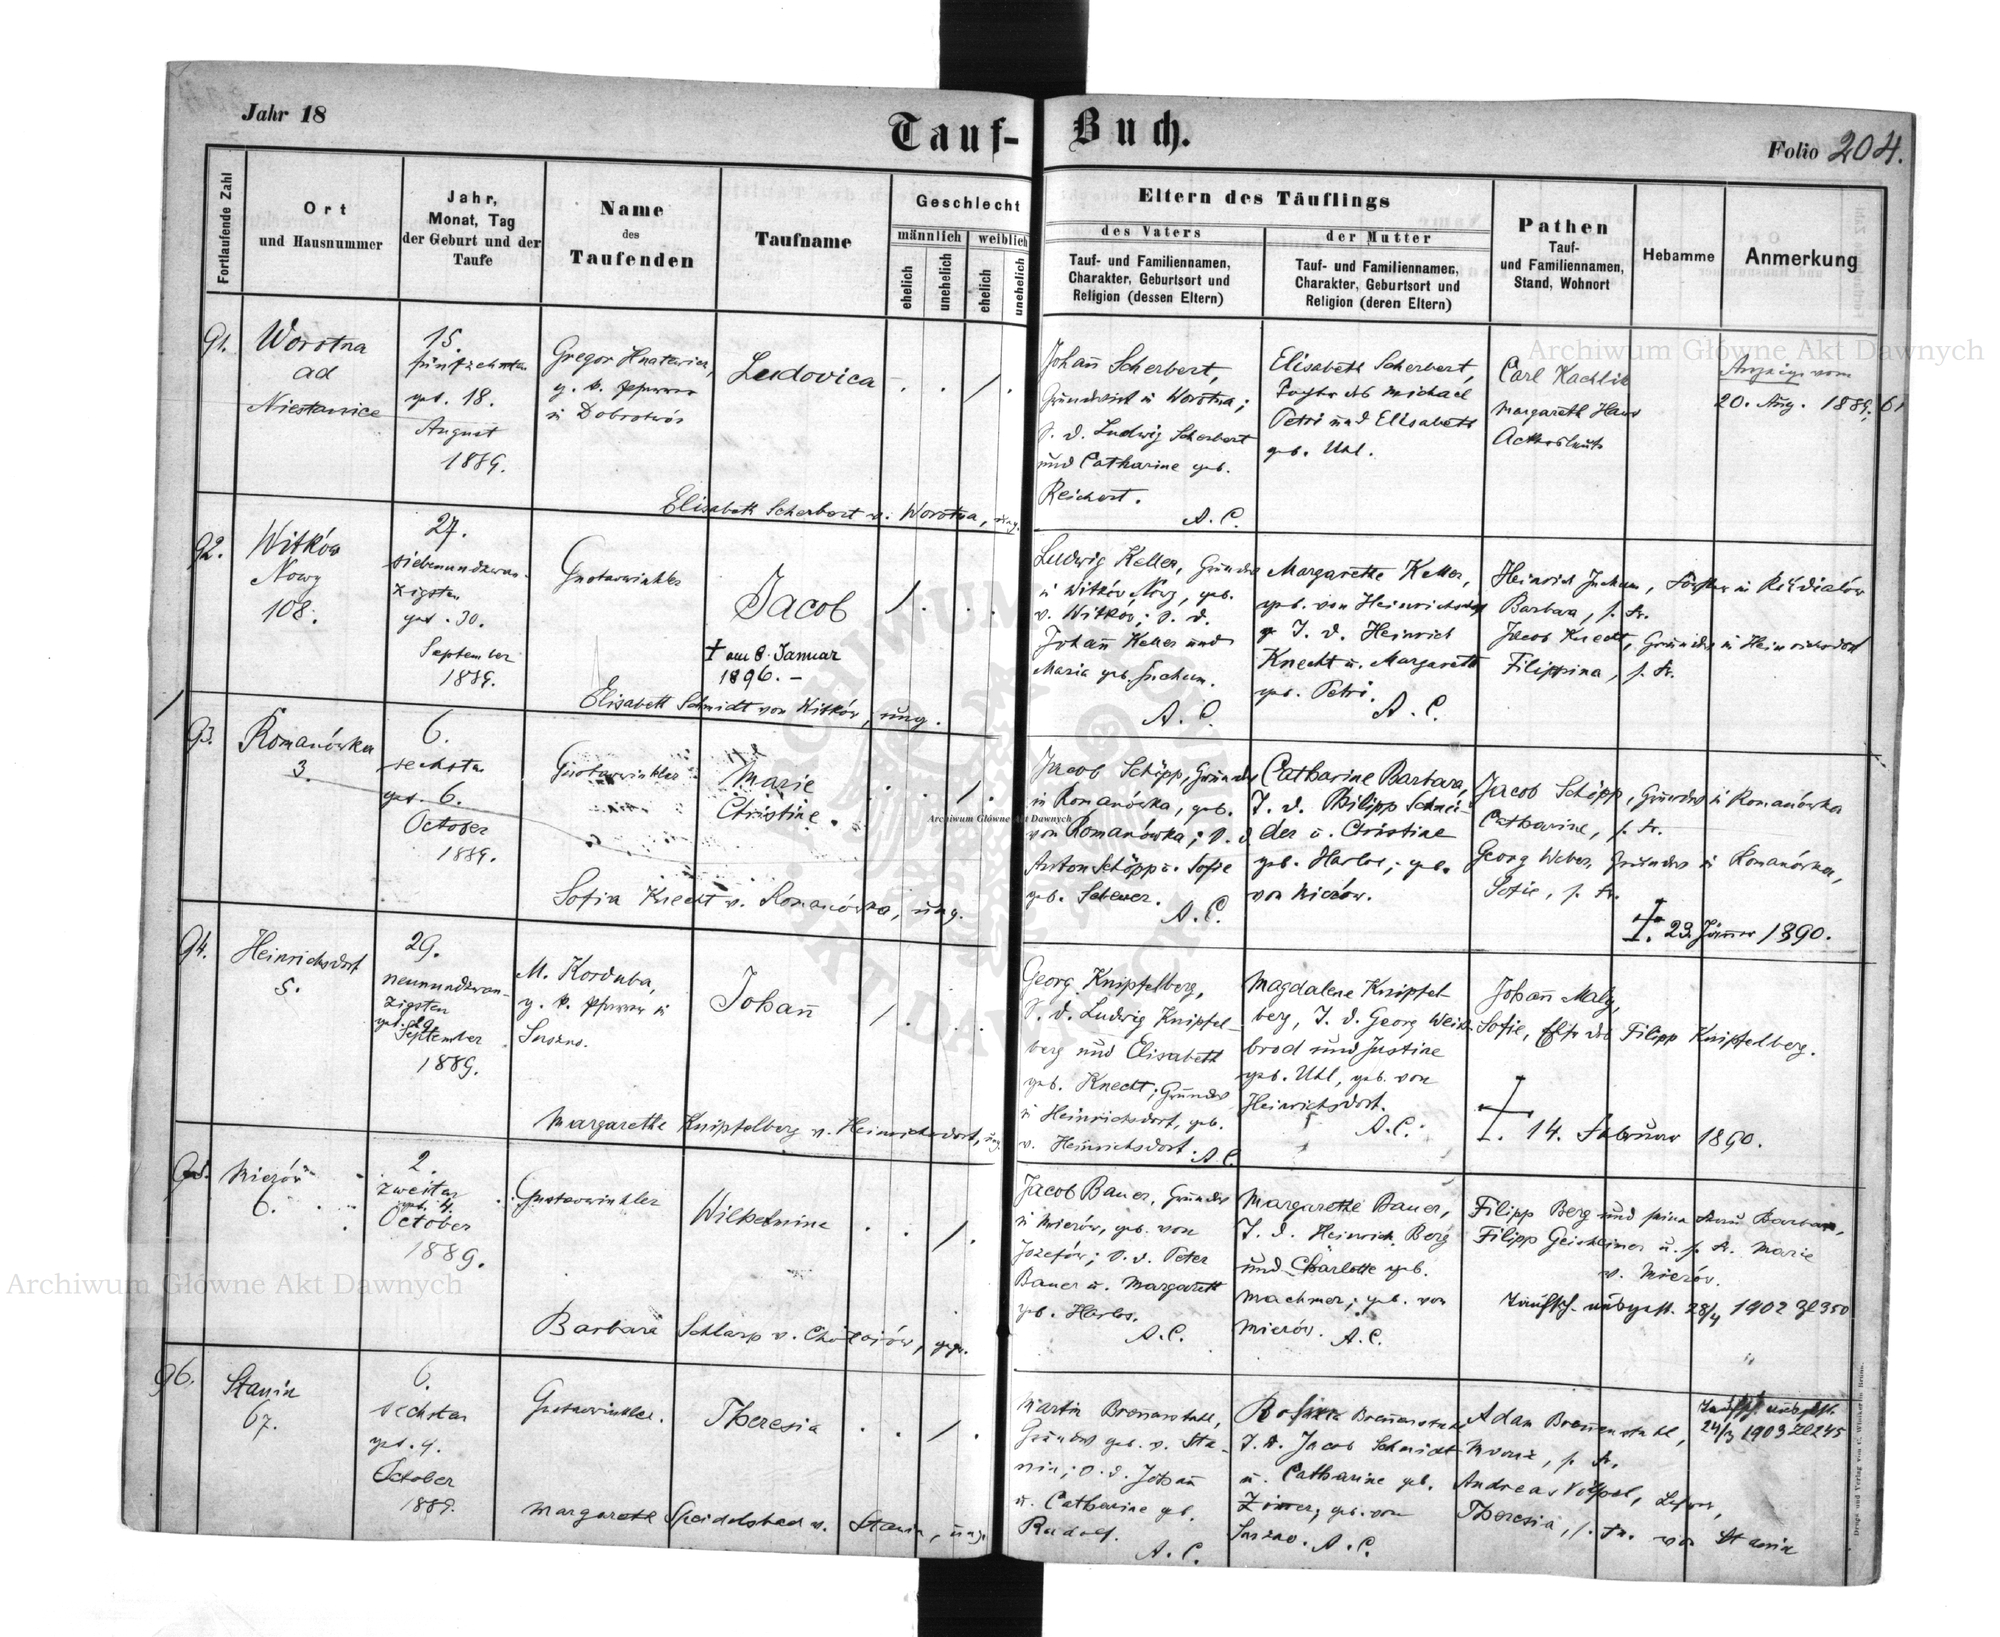 Jahr 18
Tauf-Buch.
Folio 204.
Fortlaufende Zahl
Ort
und Hausnummer
Jahr,
Monat, Tag
der Geburt und der
Taufe
Name
des
Taufenden
Taufname
Geschlecht
männlich
weiblich
ehelich
unehelich
ehelich
unehelich
Eltern des Täuflings
des Vaters
Tauf- und Familiennamen,
Charakter, Geburtsort und
Religion (dessen Eltern)
der Mutter
Tauf- und Familiennamen,
Charakter, Geburtsort und
Religion (deren Eltern)
Pathen
Tauf-
und Familiennamen,
Stand, Wohnort
Hebamme
Anmerkung
91.
Worotna
ad
Niestanice
15.
fünfzehnten
get. 18.
August
1889.
Gregor Hnatewicz,
g. k. Pfarrer
in Dobrotwór
Ludovica
Johann Scherbert,
Grundwirt in Worotna;
S. d. Ludwig Scherbert
und Catharine geb.
Reichert.
A. C.
Elisabeth Scherbert,
Tochter des Michael
Petri und Elisabeth
geb. Uhl.
Carl Kachlik
Margareth Haus
Ackersleute
Anzeige vom
20. Aug. 1889. 61
Elisabeth Scherbert v. Worotna, ung.
92.
Witków
Nowy
108.
27.
siebenundzwan-
zigsten
get. 30.
September
1889.
Gustavwinkler
Jacob
† am 8. Januar
1896. –
Ludwig Keller, Grundw
in Witków Nowy, geb.
v. Witków; S. d.
Johann Keller und
Maria geb. Jucham.
A. C.
Margarethe Keller,
geb. von Heinrichsdorf
T. d. Heinrich
Knecht u. Margareth
geb. Petri.
A. C.
Heinrich Jucham, Förster in
Barbara, s. Fr.
Jacob Knecht, Grundw in Heinrichsdorf
Filippina, s. Fr.
Elisabeth Schmidt von Witków, ung.
93.
Romanówka
3.
6.
sechsten
get. 6.
October
1889.
Gustavwinkler
Marie
Christine.
Jacob Schöpp, Grundw
in Romanówka, geb.
von Romanówka; S. d.
Anton Schöpp u. Sofie
geb. Scherer.
A. C.
Catharine Barbara,
T. d. Philipp Schnei-
der u. Christine
geb. Harlos, geb.
von Mierów.
Jacob Schöpp, Grundw in Romanówka
Catharine, s. Fr.
Georg Weber, Grundw in Romanówka,
Sofie, s. Fr.
† 23. Jänner 1890.
Sofia Knecht v. Romanówka, ung.
94.
Heinrichsdorf
5.
29.
neunundzwan-
zigsten
get. 29.
September
1889.
M. Korduba,
g. k. Pfarrer in
Suszno.
Johann
Georg Knipfelberg,
S. d. Ludwig Knipfel-
berg und Elisabeth
geb. Knecht; Grundw
in Heinrichsdorf, geb.
v. Heinrichsdorf. A. C.
Magdalene Knipfel-
berg, T. d. Georg Weiss-
brod und Justine
geb. Uhl, geb. von
Heinrichsdorf.
A. C.
Johann Maly,
Sofie, des Filipp Knipfelberg.
†. 14. Februar 1890.
Margarethe Knipfelberg v. Heinrichsdorf, ung.
95.
Mierów
6.
2.
zweiten
get. 4.
October
1889.
Gustavwinkler
Wilhelmine
Jacob Bauer, Grundw
in Mierów, geb. von
Józefów; S. d. Peter
Bauer u. Margareth
geb. Harlos.
A. C.
Margarethe Bauer,
T. d. Heinrich Berg
und Charlotte geb.
Machmer; geb. von
Mierów. A. C.
Filipp Berg und seine Frau Barbara,
Filipp Geisheimer u. s. Fr. Marie
v. Mierów.
Taufsch. ausgest. 28/4 1902 Zl 350
Barbara Schlarp v. Chołojów, gepr.
96.
Stanin
67.
6.
sechsten
get. 9.
October
1889.
Gustavwinkler.
Theresia
Martin Brennenstuhl,
Grundw geb. v. Sta-
nin; S. d. Johann
u. Catharine geb.
Rudolf.
A. C.
Rosina Brennenstuhl
T. d. Jacob Schmidt
u. Catharine geb.
Zimmer, geb. von
Suszno. A. C.
Adam Brennenstuhl,
s. Fr.
Andreas Völpel, Lehrer,
Theresia, s. Fr. von Stanin
Taufsch. ausgest.
24/3 1903 Zl 245
Margareth Speidelsbach v. Stanin, ung.
Druck und Verlag von C. Winiker in Brünn.
Archiwum Główne Akt Dawnych
Archiwum Główne Akt Dawnych
Archiwum Główne Akt Dawnych